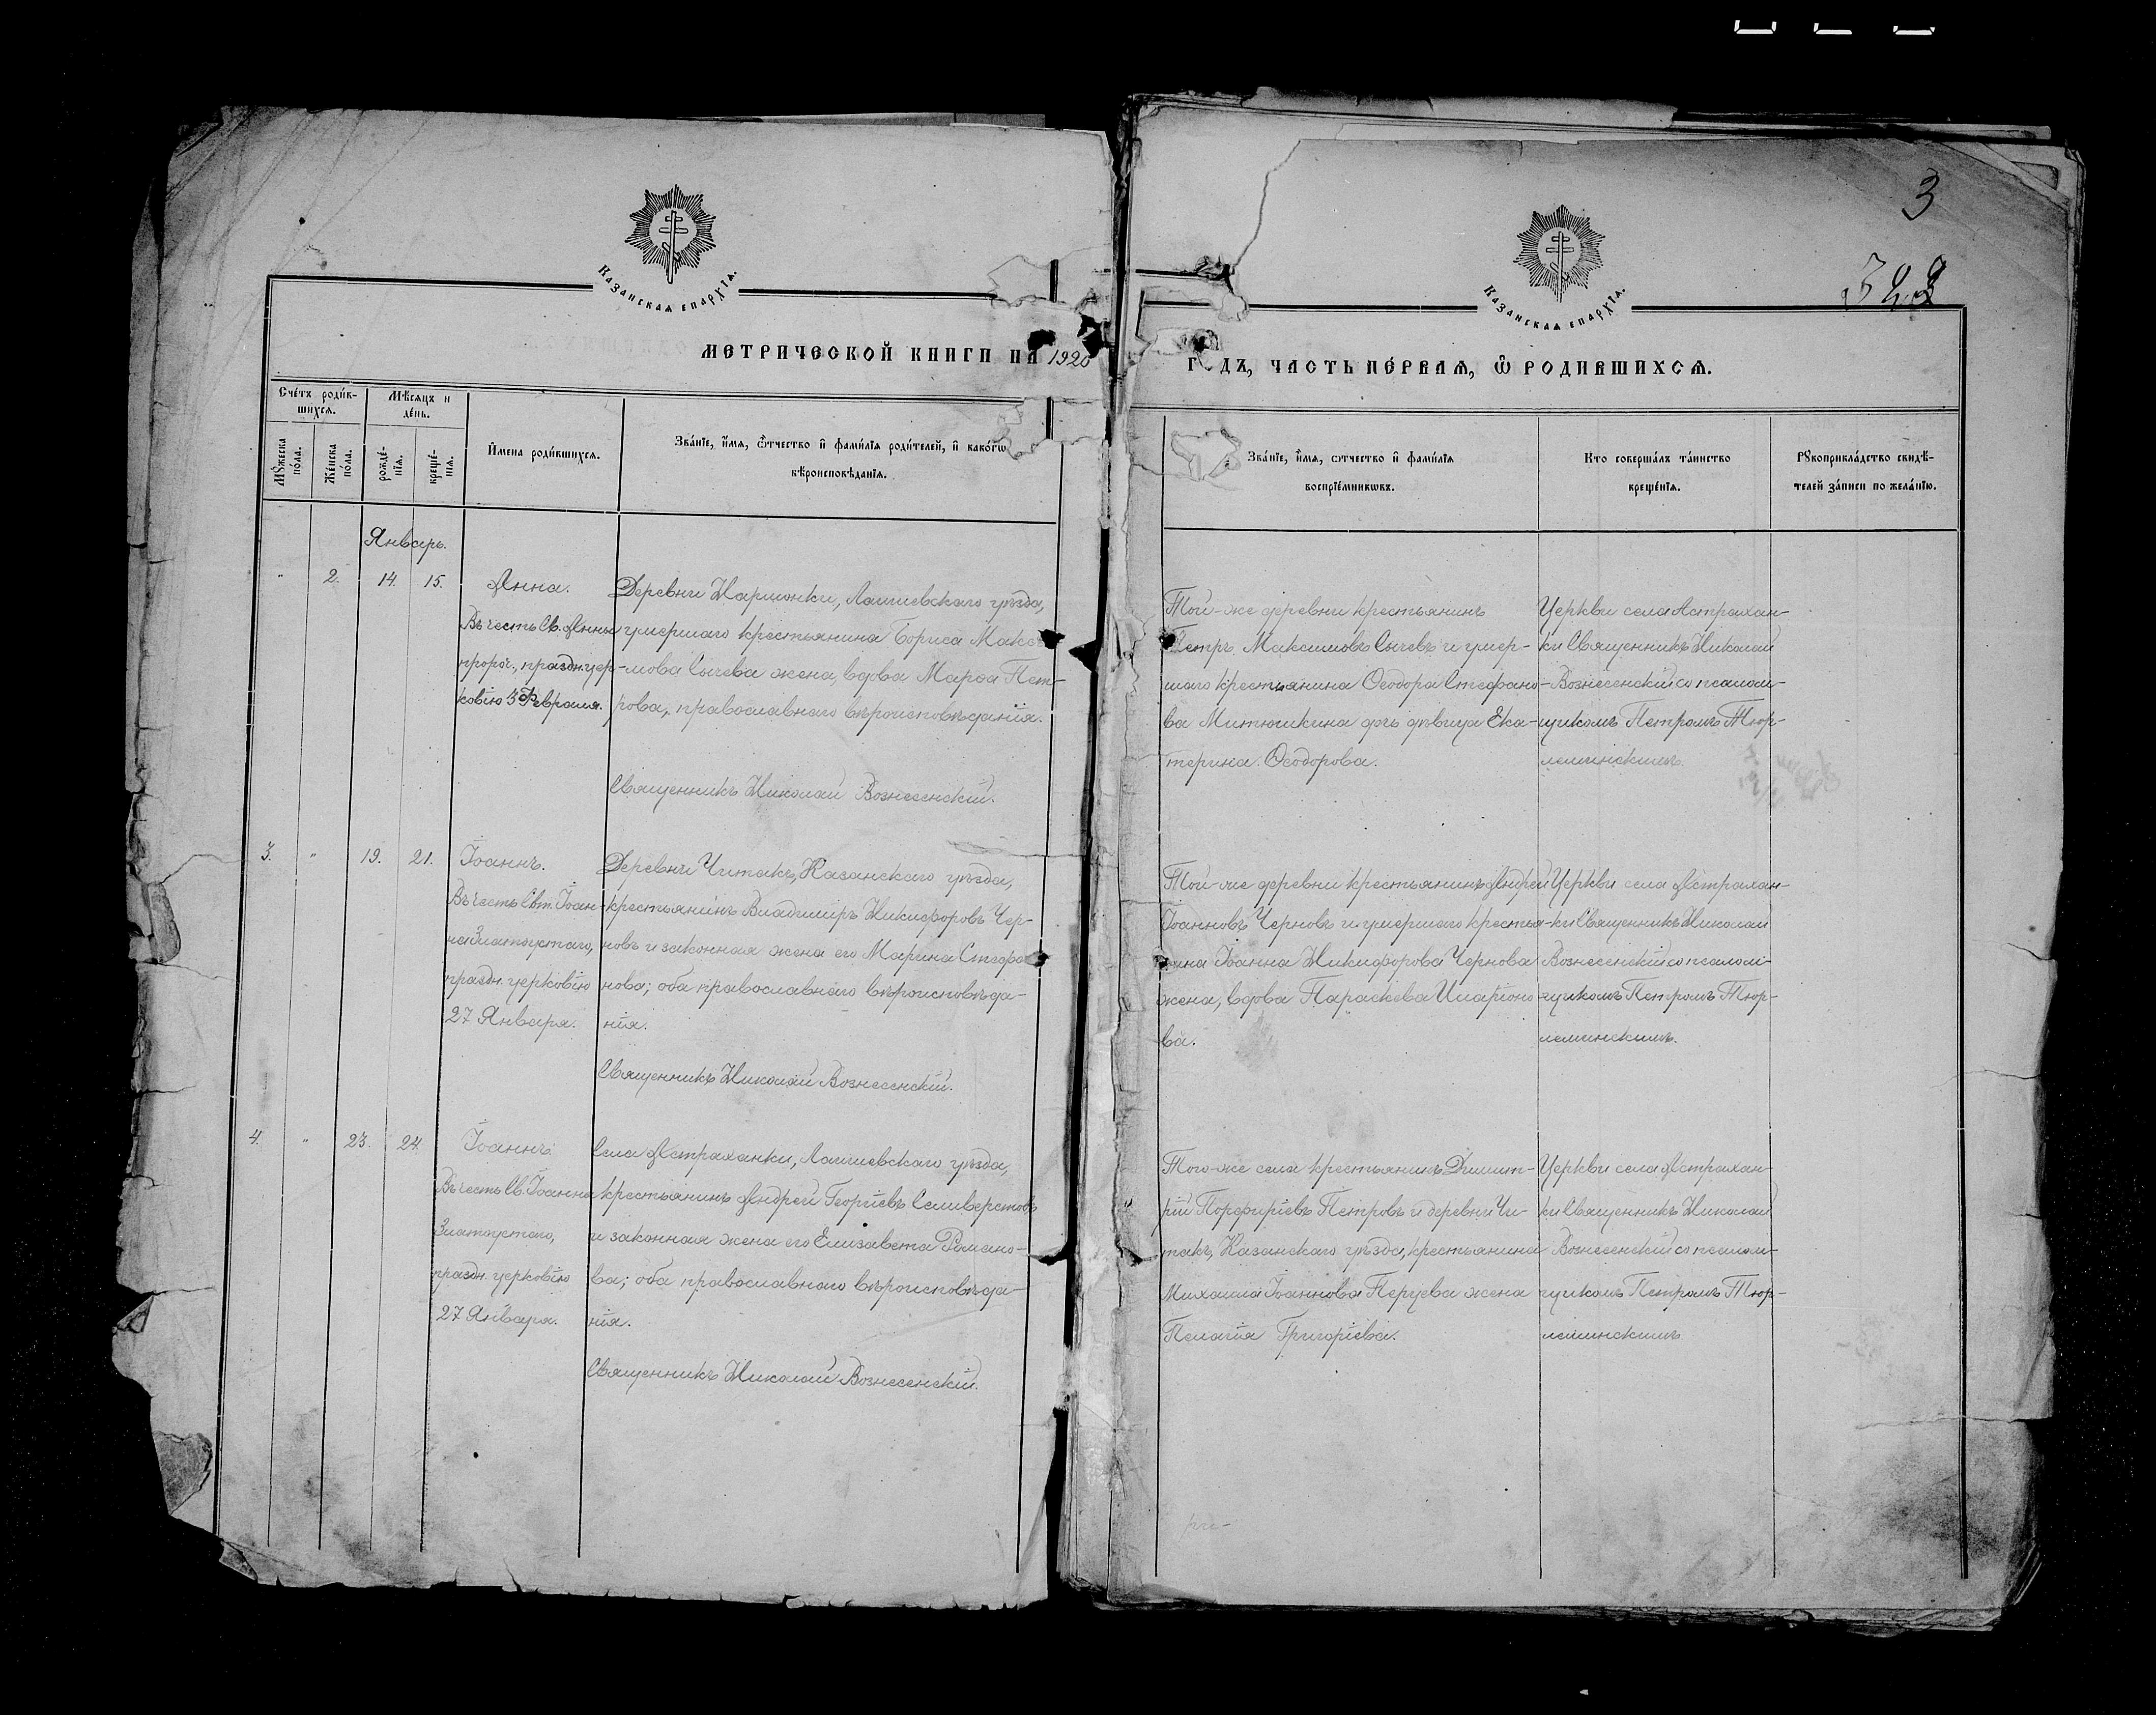 3
323
Казанская епархїа.
Казанская епархїа.
МЕТРИЧЕСКОЙ КНИГИ НА 1920
ГОДЪ, ЧАСТЬ ПЕ́РВАЯ, Ѽ РОДИВШИХСЯ.
Сче́тъ роди́в-
шихся.
Мѣ́сяцъ и
де́нь.
Мꙋ́жеска
по́ла.
Же́нска
по́ла.
рожде́-
нїя.
креще́-
нїя.
И҆мена роди́вшихся.
Зва́нїе, и҆́мя, ѻ҆́тчество и҆ фами́лїя роди́телей, и҆ како́гѡ
вѣроисповѣ́данїя.
Зва́нїе, и҆́мя, ѻтчество и҆ фами́лїя
воспрїе́мникѡвъ.
Кто соверша́лъ та́инство
креще́нїя.
Рꙋкоприкла́дство свидѣ́-
телей за́писи по жела́нїю.
Январь.
" 2. 14. 15. Анна.
Въ честь Св. Анны
пророч., праздн. цер-
ковію 3 Февраля.
Деревни Нармонки, Лаишевскаго уѣзда,
умершаго крестьянина Бориса Макси-
мова Сычева жена, вдова Марѳа Пет-
рова, православнаго вѣроисповѣданія.
Священникъ Николай Вознесенскій.
Той-же деревни крестьянинъ
Петръ Максимовъ Сычевъ и умер-
шаго крестьянина Ѳеодора Стефано-
ва Митюшкина дчь дѣвица Ека-
терина Ѳеодорова.
Церкви села Астрахан-
ки Священникъ Николай
Вознесенскій со псалом-
щикомъ Петромъ Тюр-
леминскимъ.
3. " 19. 21. Іоаннъ.
Въ честь Свт. Іоан-
на Златоустаго,
праздн. церковію
27 Января.
Деревни Читакъ, Казанскаго уѣзда,
крестьянинъ Владимиръ Никифоровъ Чер-
новъ и законная жена его Марина Стефа-
нова; оба православнаго вѣроисповѣда-
нія.
Священникъ Николай Вознесенскій.
Той-же деревни крестьянинъ Андрей
Іоанновъ Черновъ и умершаго крестья-
нина Іоанна Никифорова Чернова
жена, вдова Параскева Иларіоно-
ва.
Церкви села Астрахан-
ки Священникъ Николай
Вознесенскій со псалом-
щикомъ Петромъ Тюр-
леминскимъ.
4. " 23. 24. Іоаннъ.
Въ честь Св. Іоанна
Златоустаго,
праздн. церковію
27 Января.
Села Астраханки, Лаишевскаго уѣзда,
крестьянинъ Андрей Георгіевъ Селиверстовъ
и законная жена его Елизавета Романо-
ва; оба православнаго вѣроисповѣда-
нія.
Священникъ Николай Вознесенскій.
Того-же села крестьянинъ Димит-
рій Порфиріевъ Петровъ и деревни Чи-
такъ, Казанскаго уѣзда, крестьянина
Михаила Іоаннова Перцева жена
Пелагія Григоріева.
Церкви села Астрахан-
ки Священникъ Николай
Вознесенскій со псалом-
щикомъ Петромъ Тюр-
леминскимъ